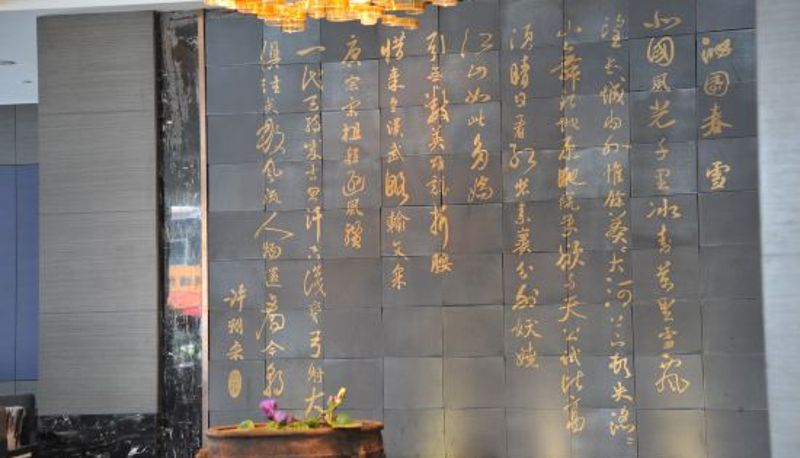 沁园春 雪
北国风光千里冰封万里雪飘
望长城内外惟余莽莽大河上下顿失滔滔
山舞银蛇原驰蜡象欲与天公试比高
须晴日看红装素裹分外妖娆
江山如此多娇
引无数英雄竞折腰
惜秦皇汉武略输文采
唐宗宋祖稍逊风骚
一代天骄成吉思汗只识弯弓射大
俱往矣数风流人物还看今朝